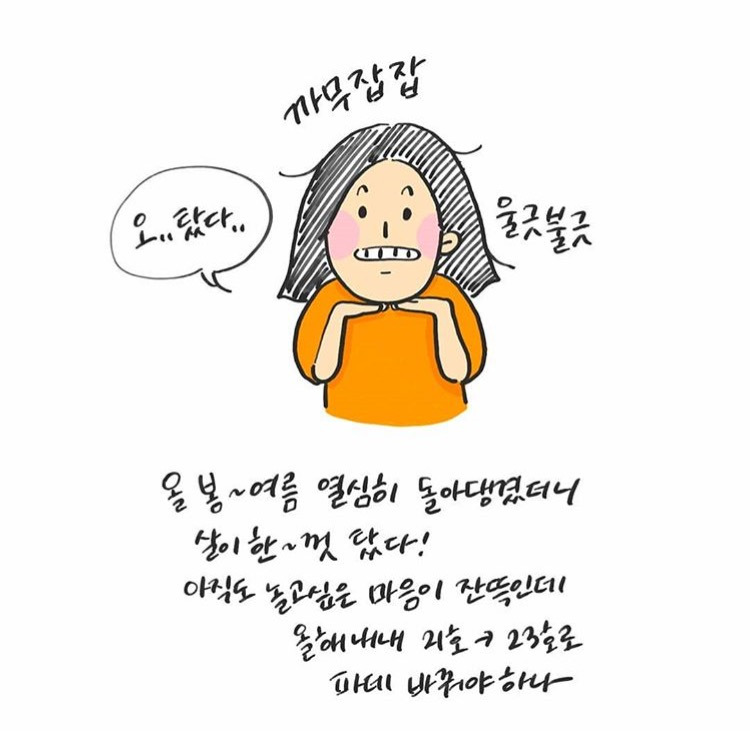 까무잡잡
오..탔다..
울긋불긋
올 봄~여름 열심히 돌아댕겼더니
살이 한~껏 탔다!
아직도 놀고싶은 마음이 잔뜩인데
올해내내 21호→23호로
파데 바꿔야하나